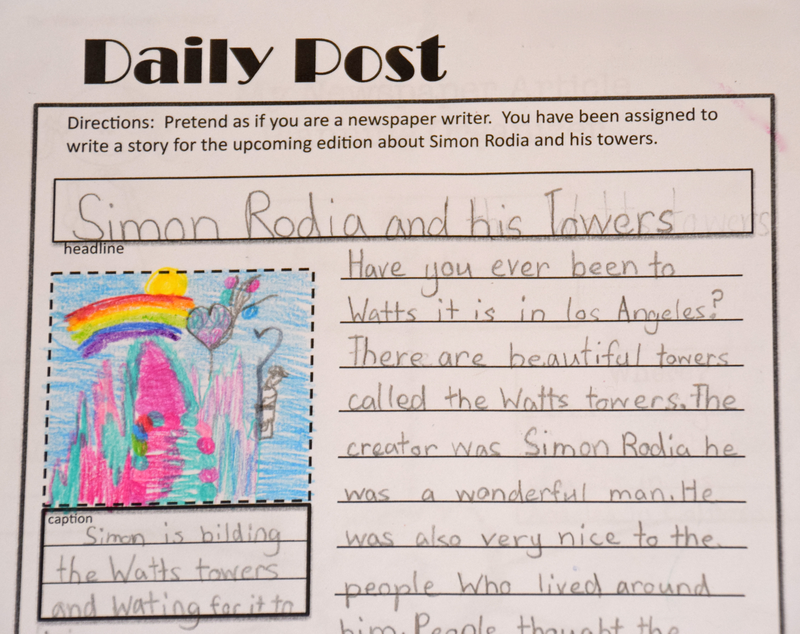 Daily Post
Directions:  Pretend as if you are a newspaper writer.  You have been assigned to
write a story for the upcoming edition about Simon Rodia and his towers.
Simon Rodia and his Towers
headline
Have you ever been to
Watts it is in los Angeles?
There are beautiful towers
called the Watts towers. The
creator was Simon Rodia he
was a wonderful man. He
was also very nice to the
people who lived around
him. People thought the
caption
Simon is bilding
the Watts towers
and wating for it to